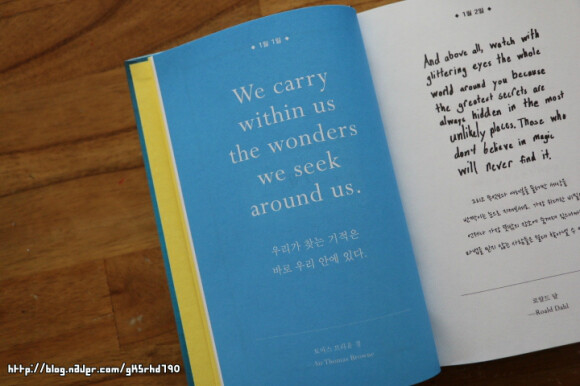 1월 1일
We carry
within us
the wonders
we seek
around us.
우리가 찾는 기적은
바로 우리 안에 있다.
토머스 브라운 경
—Sir Thomas Browne
1월 2일
And above all, watch with
glittering eyes the whole
world around you because
the greatest secrets are
always hidden in the most
unlikely places. Those who
don't believe in magic
will never find it.
그리고 무엇보다
로알드 달
—Roald Dahl
http://blog.naver.com/gk5rhd790